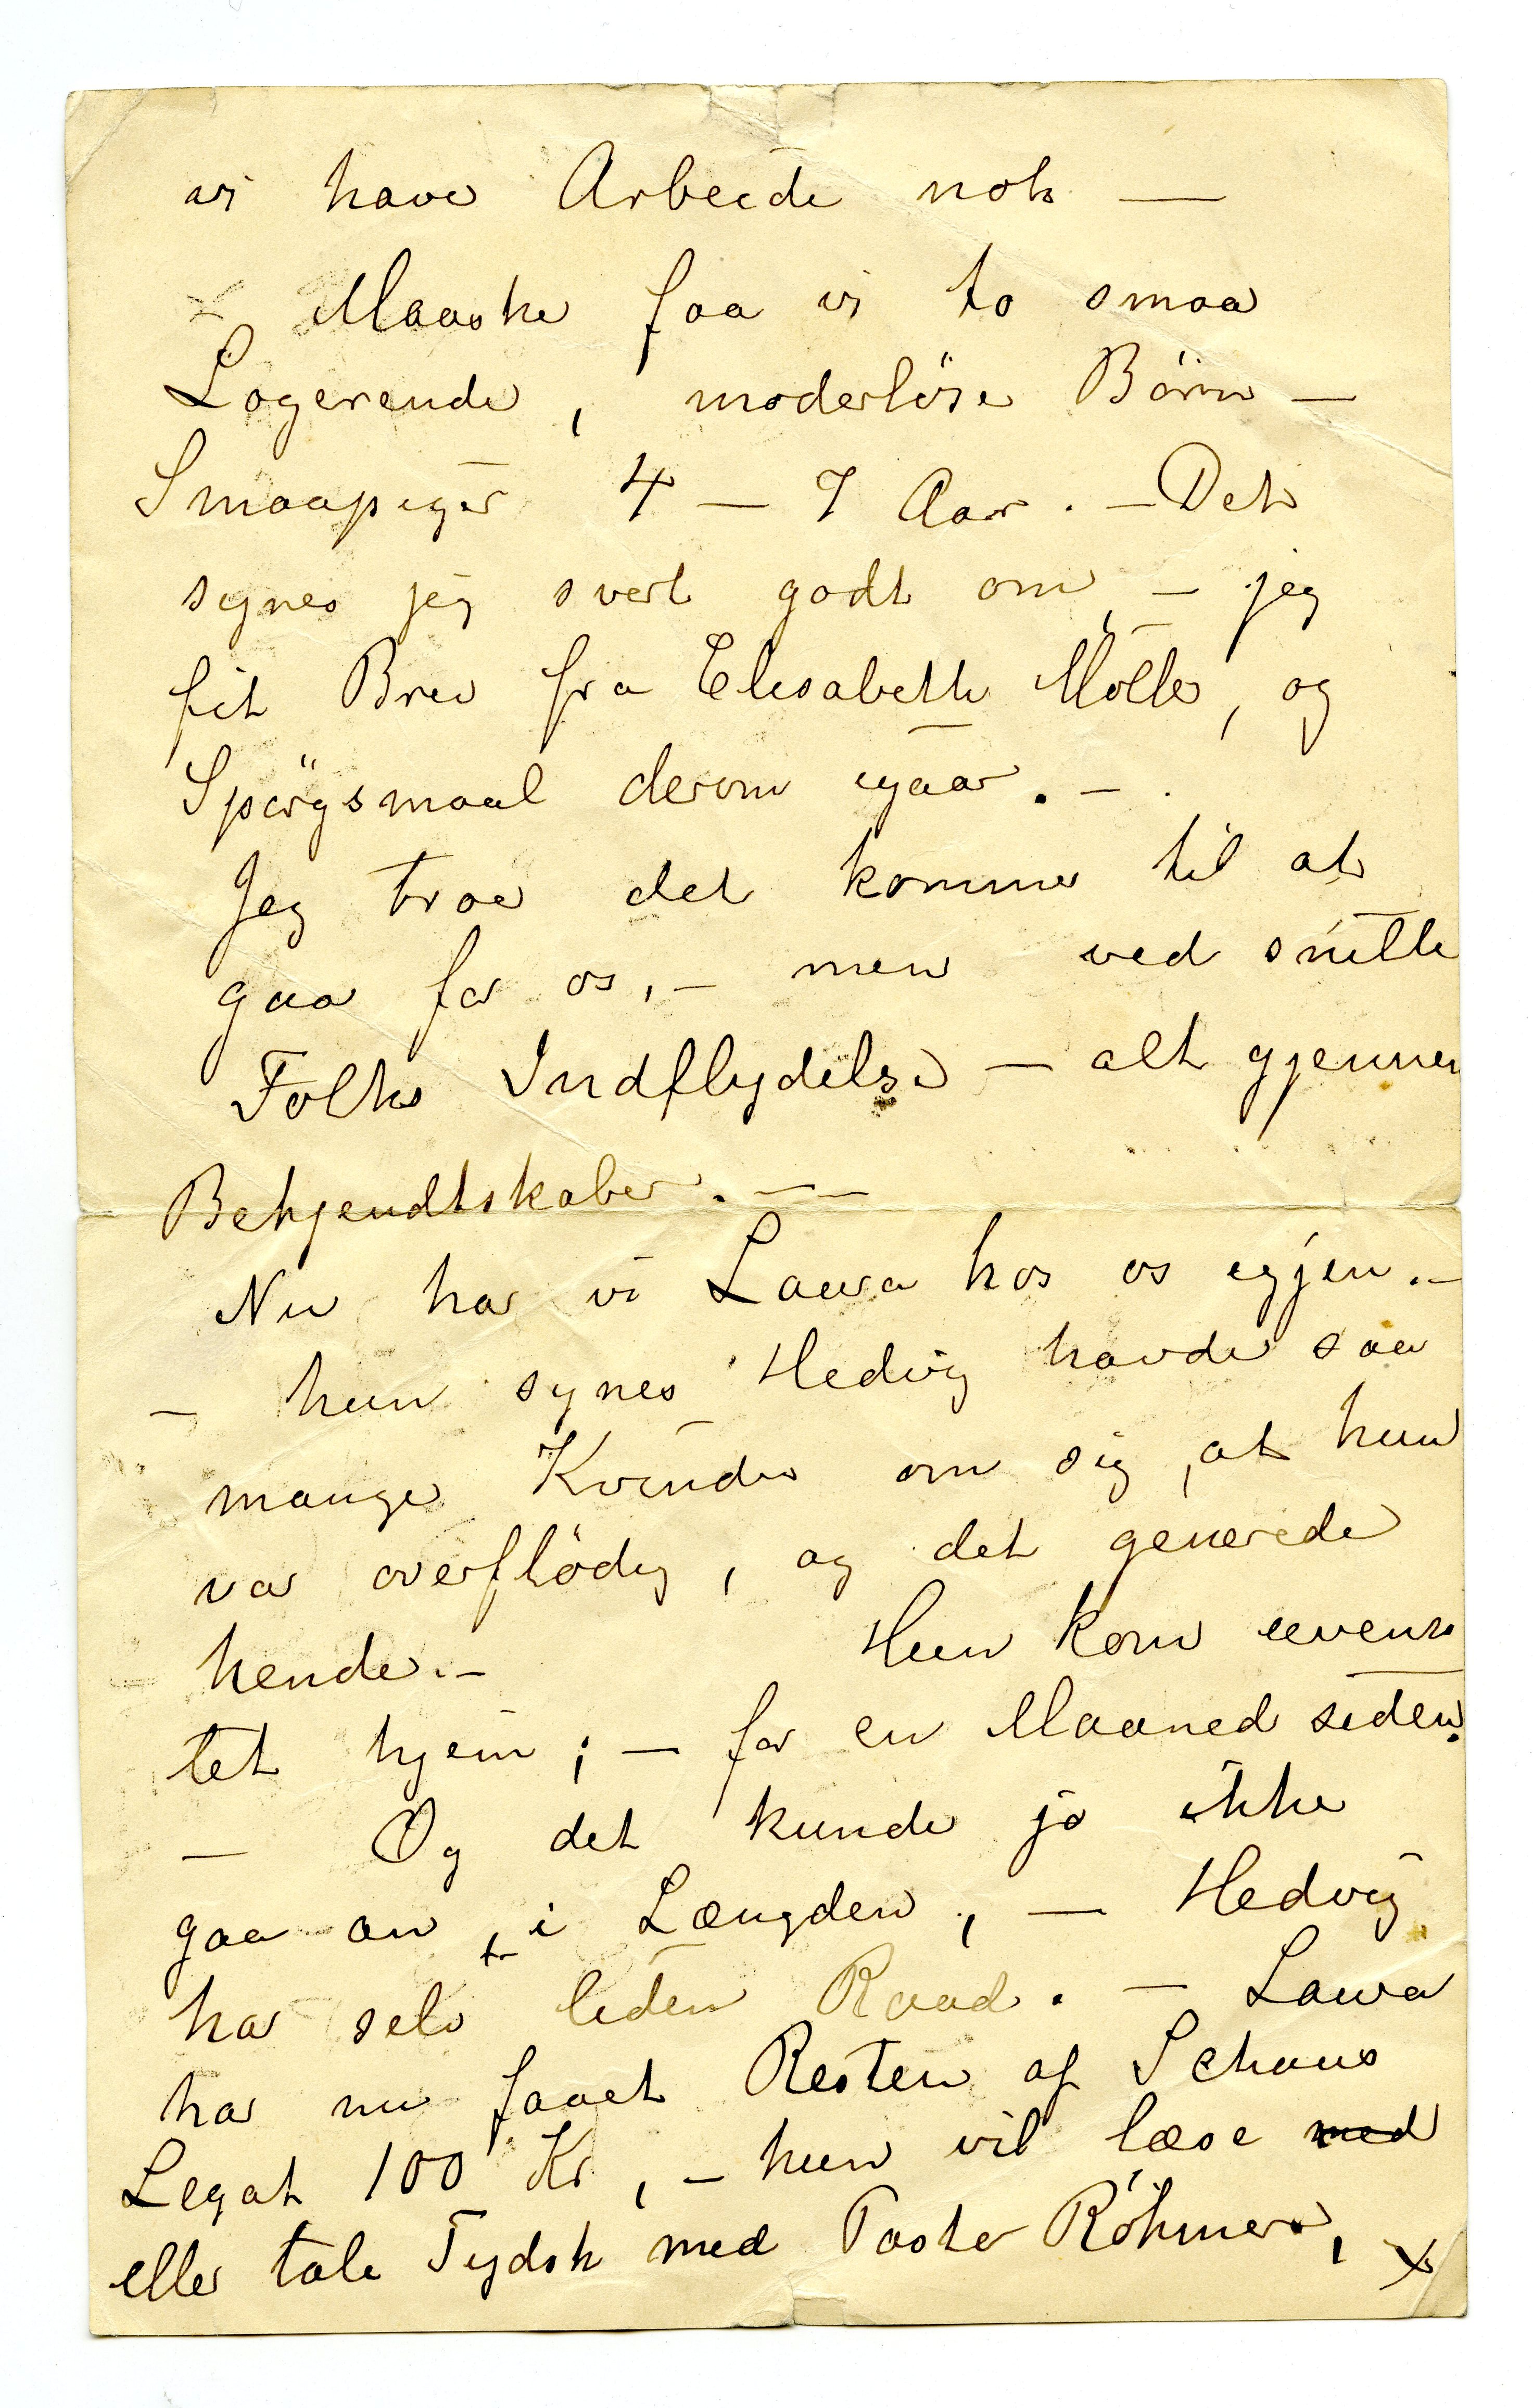 vi have Arbeide nok —
× Maaske faa vi to smaa
Logerende, moderløse Börn —
Smaapiger 4 — 7 Aar. — Det
synes jeg svert godt om, — jeg
fik Brev fra Elisabeth Mölle, og
Spørgsmaal derom igaar. —
Jeg troer det kommer til at
gaa for os, — men ved snille
Folks Indflydelse — alt gjennem
Bekjendtskaber. — —
Nu har vi Laura hos os igjen. —
— hun synes Hedvig havde saa
mange Kvinder om sig, at hun
var overflödig, og det generede
hende. — Hun kom uvens
tet hjem; — for en Maaned siden.
— Og det kunde jo ikke
gaa an, i Længden, — Hedvig
har selv liden Raad. — Laura
har nu faaet Resten af Schous
Legat 100 Kr, — hun vil læse med
eller tale Tydsk med Pastor Röhmer, ×